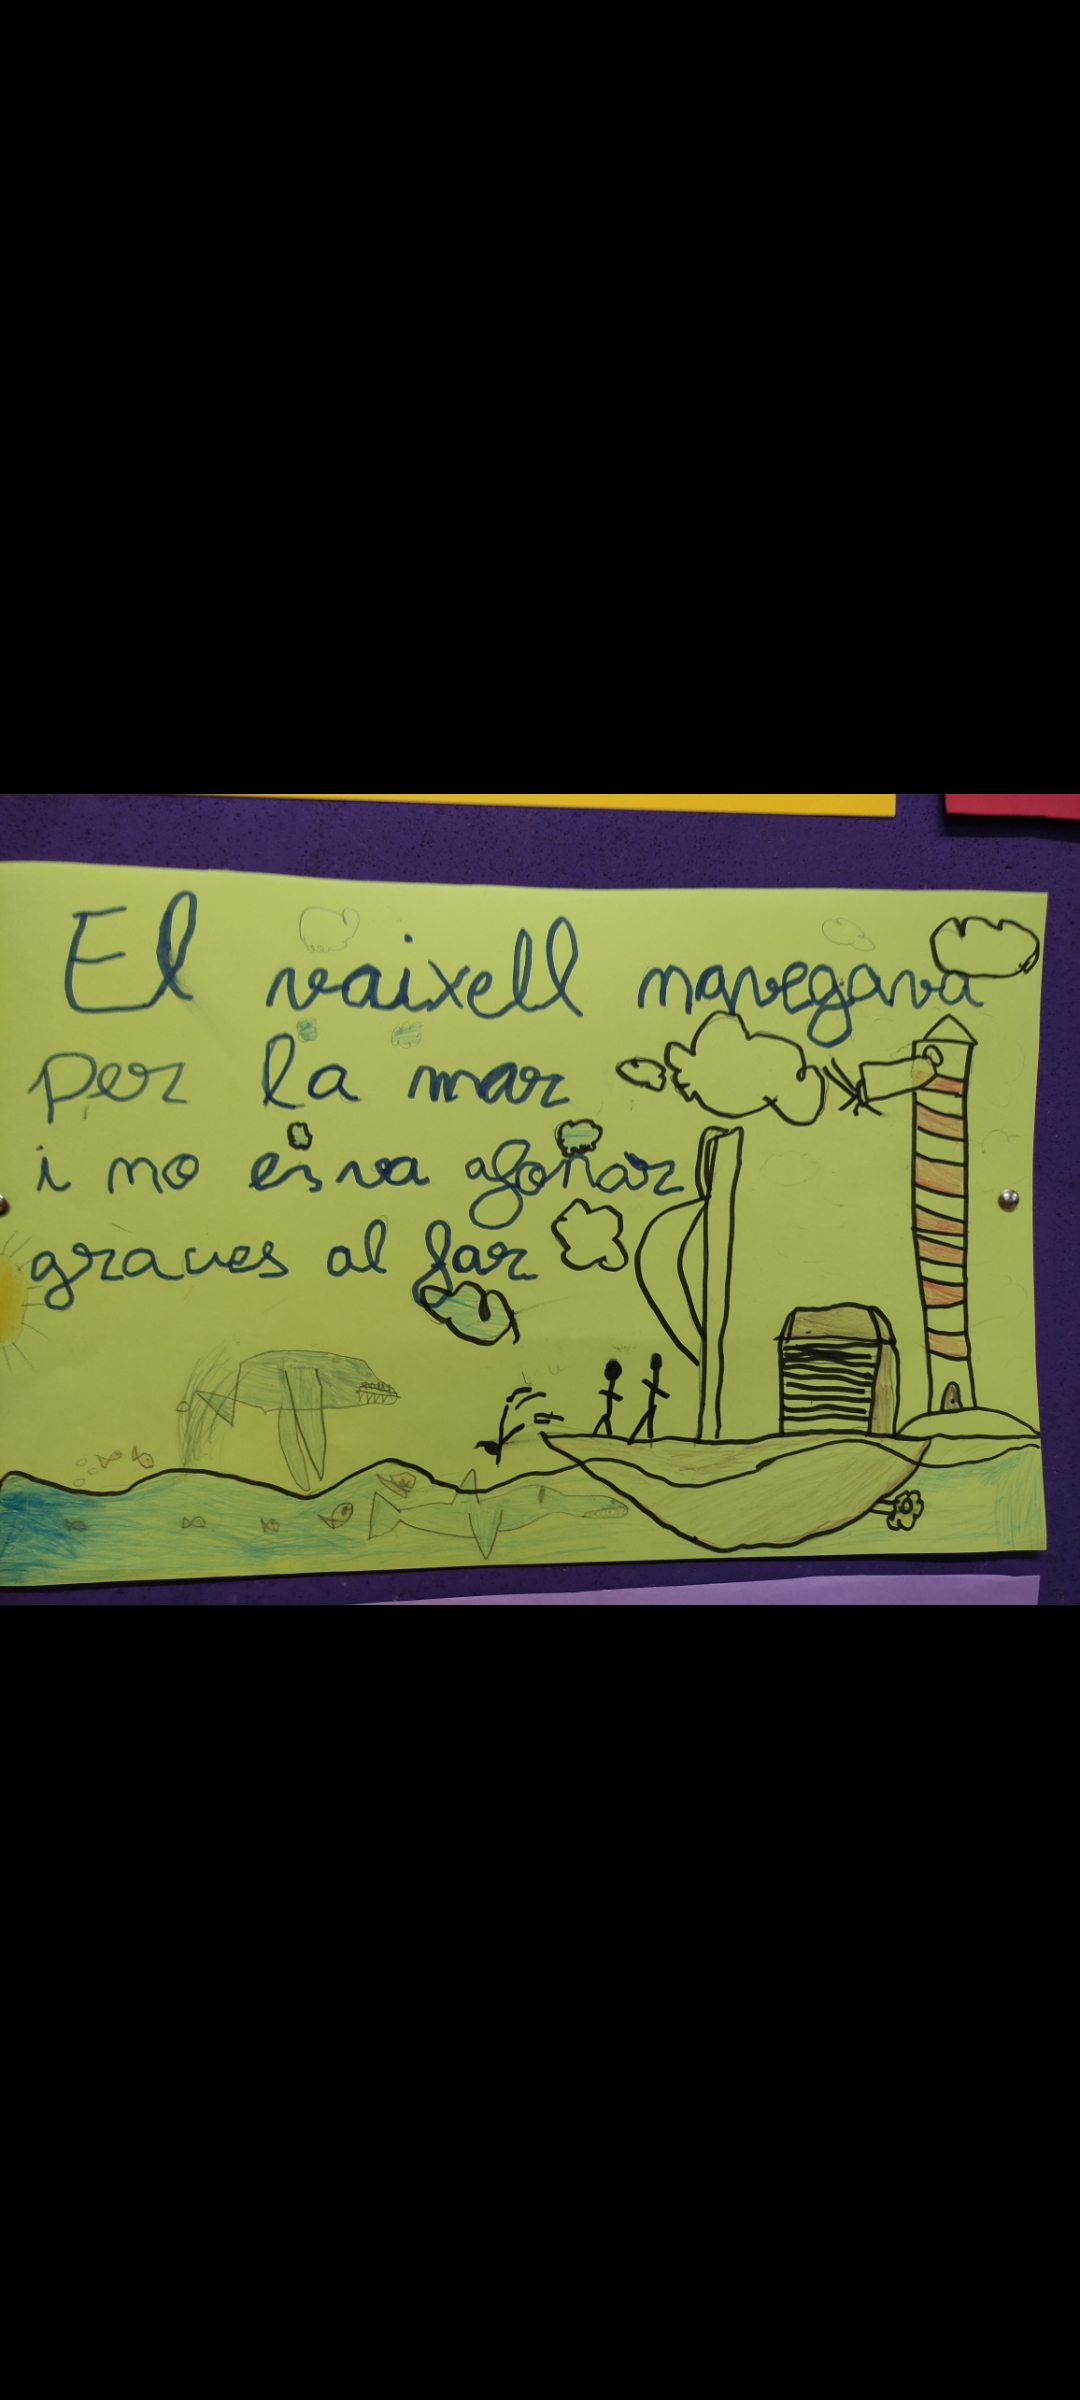 El vaixell navegava
per la mar
i no es va afonar
gracies al far